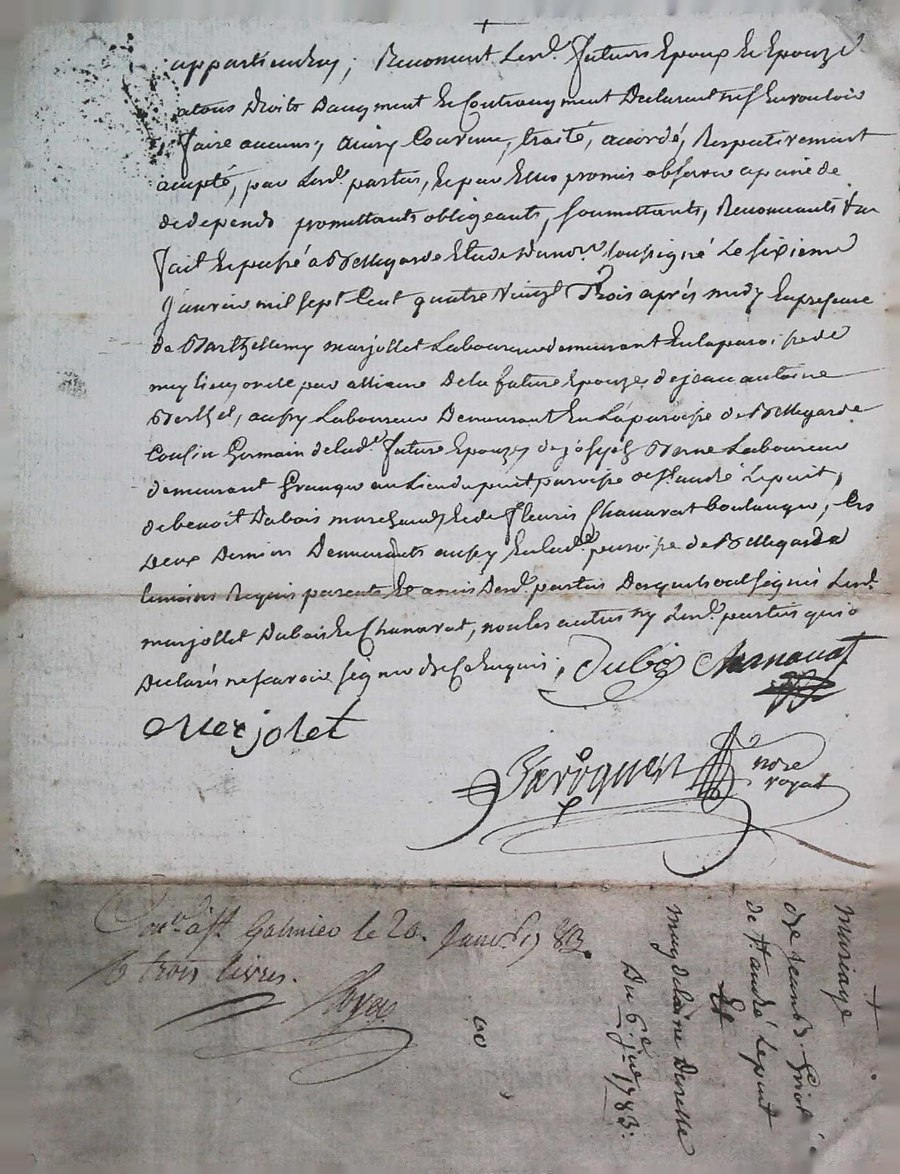 appartiendra; Renoncent Lesd. futurs Epoux Et Epouze
atous Droits Daugment Et Contraugment Declarant nef Envouloir
faire aucuns; ainsy Convenu, traité, acordé, Respectivement
acepté, par Lesd. parties, Et par Elles promis observer apeine de
de depends promettants obligeants, soumettants, Renonceants &a
fait Et passé a Bellegarde Etude Dunore. soussigné Le sixieme
Janvier mil sept Cent quatre vingt Trois aprés midy Enpresence
de Barthellemy marjollet Laboureur demeurant Enlaparoisse de
oncle par alliance Dela future Epouze, de jean antoine
aussy Laboureur Demeurant En La paroisse de Bellegarde
Cousin Germain delad. future Epouze, de joseph Laboureur
demeurant Granger au Lieu du puit paroisse de st. andré Le puit,
de benoit Dubois marchand, Et de fleuris Chanavat boulanger, les
deux Derniers Demeurants aussy Enlad. paroisse de Bellegarde
temoins Requis parents Et amis Desd. parties Desquels ont signés Lesd.
marjollet Dubois Et Chanavat, non les autres ny Lesd. parties qui o
Declarés ne scavoir signer de ce Enquis;
Dubois Charnavat
Merjolet
nore
royal
Con. a st Galmier le 20. Janv. 1783.
R trois livres.
Mariage
de st andré Le puit
Et
magdelaine
Du 6e jer. 1783: